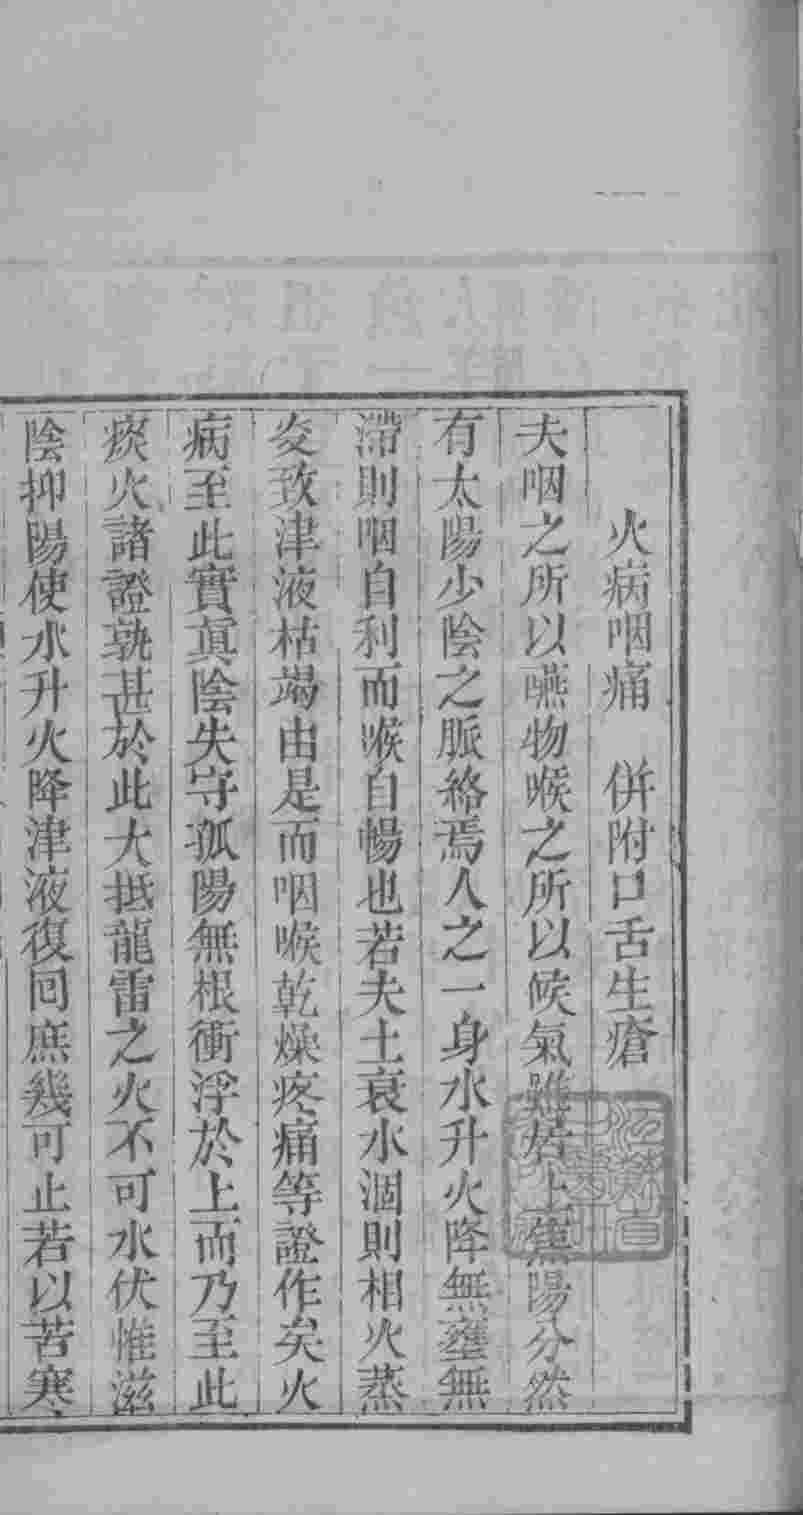 火病咽痛　併附口舌生瘡
夫咽之所以嚥物喉之所以候氣雖居上焦陽分然
有太陽少陰之脈絡焉人之一身水升火降無壅無
滯則咽自利而喉自暢也若夫土衰水涸則相火蒸
炎致津液枯竭由是而咽喉乾燥疼痛等證作矣火
病至此實眞陰失守孤陽無根衝浮於上而乃至此
痰火諸證孰甚於此大抵龍雷之火不可水伏惟滋
陰抑陽使水升火降津液復回庶幾可止若以苦寒